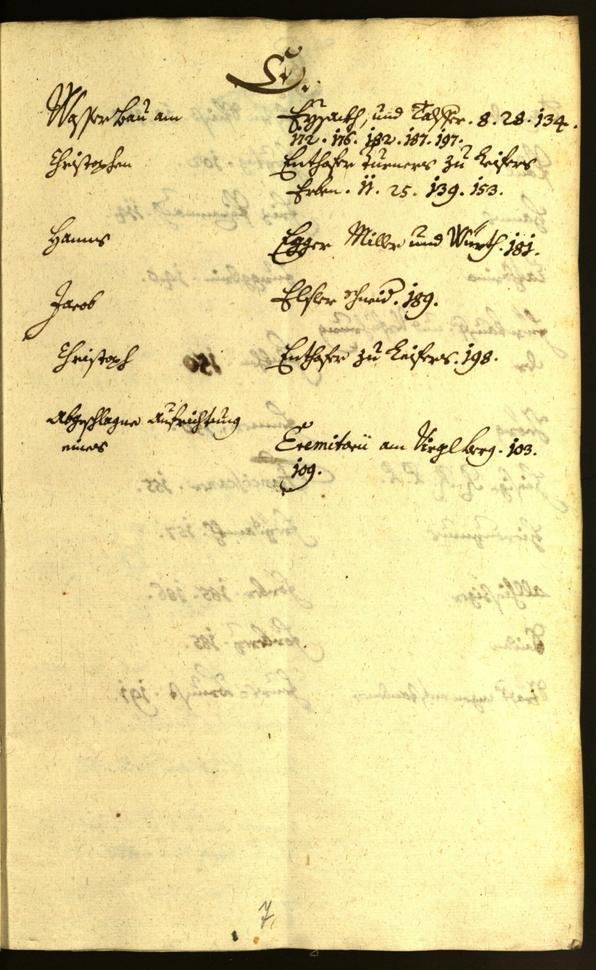 E.
Wasserbau am Eysackh, und Talffer. 8. 28. 134.
172. 176. 182. 187. 197.
Christophen Enthofer Turners zu Leifers
Erben. 11. 25. 139. 153.
Hanns Egger Miller und Würth. 181.
Jacob Elsler Schneid. 189.
Christoph Enthofer zu Leifers. 198.
Abgeschlagne Aufrichtung
eines Eremitorii am Virglberg. 103.
109.
7